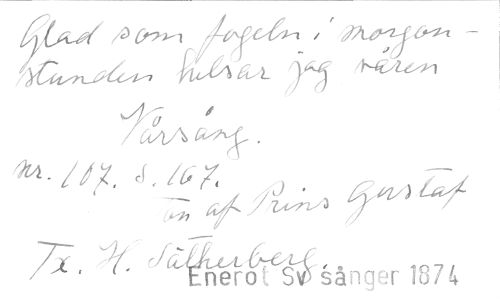 Glad som fogeln i morgon-
stunden helsar jag våren
Vårsång.
nr. 107. s. 167.
Ton af Prins Gustaf
Tx. H. Sätherberg.
Enerot Sv sånger 1874